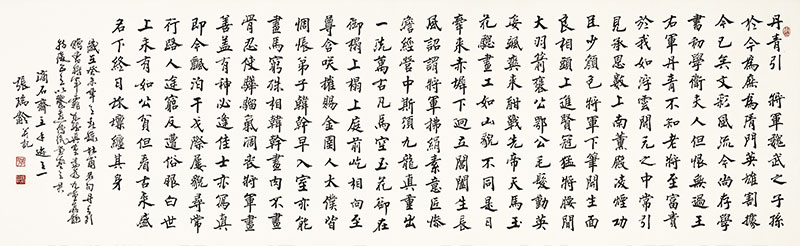 丹青引　將軍魏武之子孫
於今為庶為清門英雄割據
今已矣文彩風流今尚存學
書初學衛夫人但恨無過王
右軍丹青不知老將至富貴
於我如浮雲開元之中常引
見承恩數上南薰殿凌煙功
臣少顏色將軍下筆開生面
良相頭上進賢冠猛將腰間
大羽箭褒公鄂公毛髮動英
姿颯爽來酣戰先帝天馬玉
花驄畫工如山貌不同是日
牽來赤墀下迥立閶闔生長
風詔謂將軍拂絹素意匠慘
澹經營中斯須九龍真重出
一洗萬古凡馬空玉花卻在
御榻上榻上庭前屹相向至
尊含咲催賜金圉人太僕皆
惆悵弟子韓幹早入室亦能
畫馬窮殊相韓幹畫肉不畫
骨忍使驊騮氣凋喪將軍畫
善蓋有神必逢佳士亦寫真
即今飄泊干戈際屢貌尋常
行路人途窮反遭俗眼白世
上未有如公貧但看古來盛
名下終日坎壈纏其身
歲在癸未年之 杜甫名句丹青引
贈曹將軍霸
滴石齋主手迹之一
張瑞齡并記